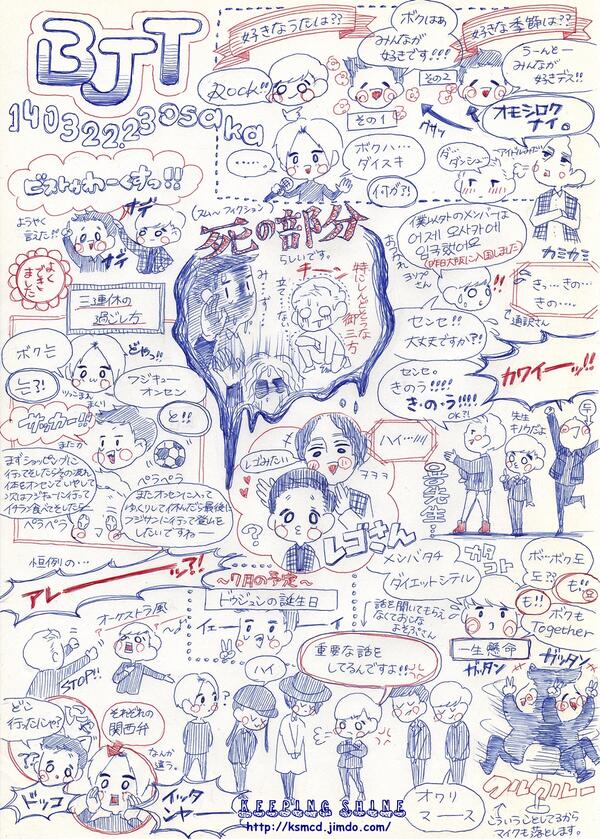 BJT
140322.23 osaka
好きなうたは??
Rock!!
ボクはぁ
みんなが
好きです!!!
その1
好きな季節は??
うーんと―
みんなが
好きデス!!
その2
グサッ
オモシロク
ナイ。
・・・・。
ボクハ…
ダイスキ
何が?!
ダ…
ダンシュー
アイドルみたい
カミカミ
ビストゥわーくすっ!!
ようやく
言えた!!
ナデ
ナデ
よく
できました
死の部分
らしいです。
チーン
特にしんどそうな
御三方
みす…
立て…ない
僕以外のメンバーは
어제 오사카에
입국했어요
(昨日大阪に入国しました)
ヨソプさん
きっ…きの…
きの…
通訳さん
センセ!!
大丈夫ですか?!
センセ。
きのう!!!!
き・の・う!!!!
OK?!
カワイーッ!!
先生
キノウだよ
三連休の
過ごし方
ボク는
는?!
どやっ!!
フジキュー
オンセン
と!!
サッカー!!
またか
まずショッピングに
行ってそしたらその流れ
次はフジキューに行って
ペラペラ
ペラペラ
またオンセンに入って
ゆっくりして休んだら最後に
フジサンに行って登山を
したいですねー
レゴみたい
ハイ…////
ㅋㅋㅋ
レゴさん
?
恒例の…
アレーーーッ?!
オーケストラ風
STOP!!
〜7月の予定〜
ドゥジュンの誕生日
イェーーーイ
メンバタチ
ダイエットシテル
カタ
コト
ボ…ボク도
도??
も!!
も!!
ボクも
Together
一生懸命
話を聞いてもらえ
なくておこな
よそぷさん
重要な話を
してるんですよ!!
ハイ
どこ
行ったにゃ?
ドッコ
にゃ
それぞれの
関西弁
なんか
違う。
イッタ
ジャー
オワリ
マース
ガッタン
ガッタン
クルクルー
こういうことしてるから
マイクも落とします。
KEEPING SHINE
http://ksmcd.jimdo.com/